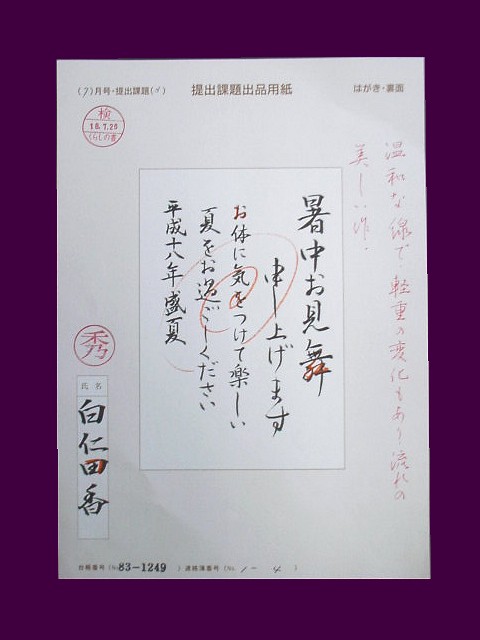 (7)月号・提出課題(イ)
提出課題出品用紙
はがき・裏面
検
18.7.28
くらしの書
温和な線で軽重の変化もあり流れの
美しい作.
暑中お見舞
申し上げます
お体に気をつけて楽しい
夏をお過ごしください
平成十八年盛夏
秀
氏名
白仁田香
台帳番号(No.83-1249)連絡簿番号(No.1-4)